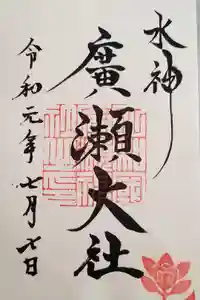 水神
廣瀬大社
令和元年七月七日